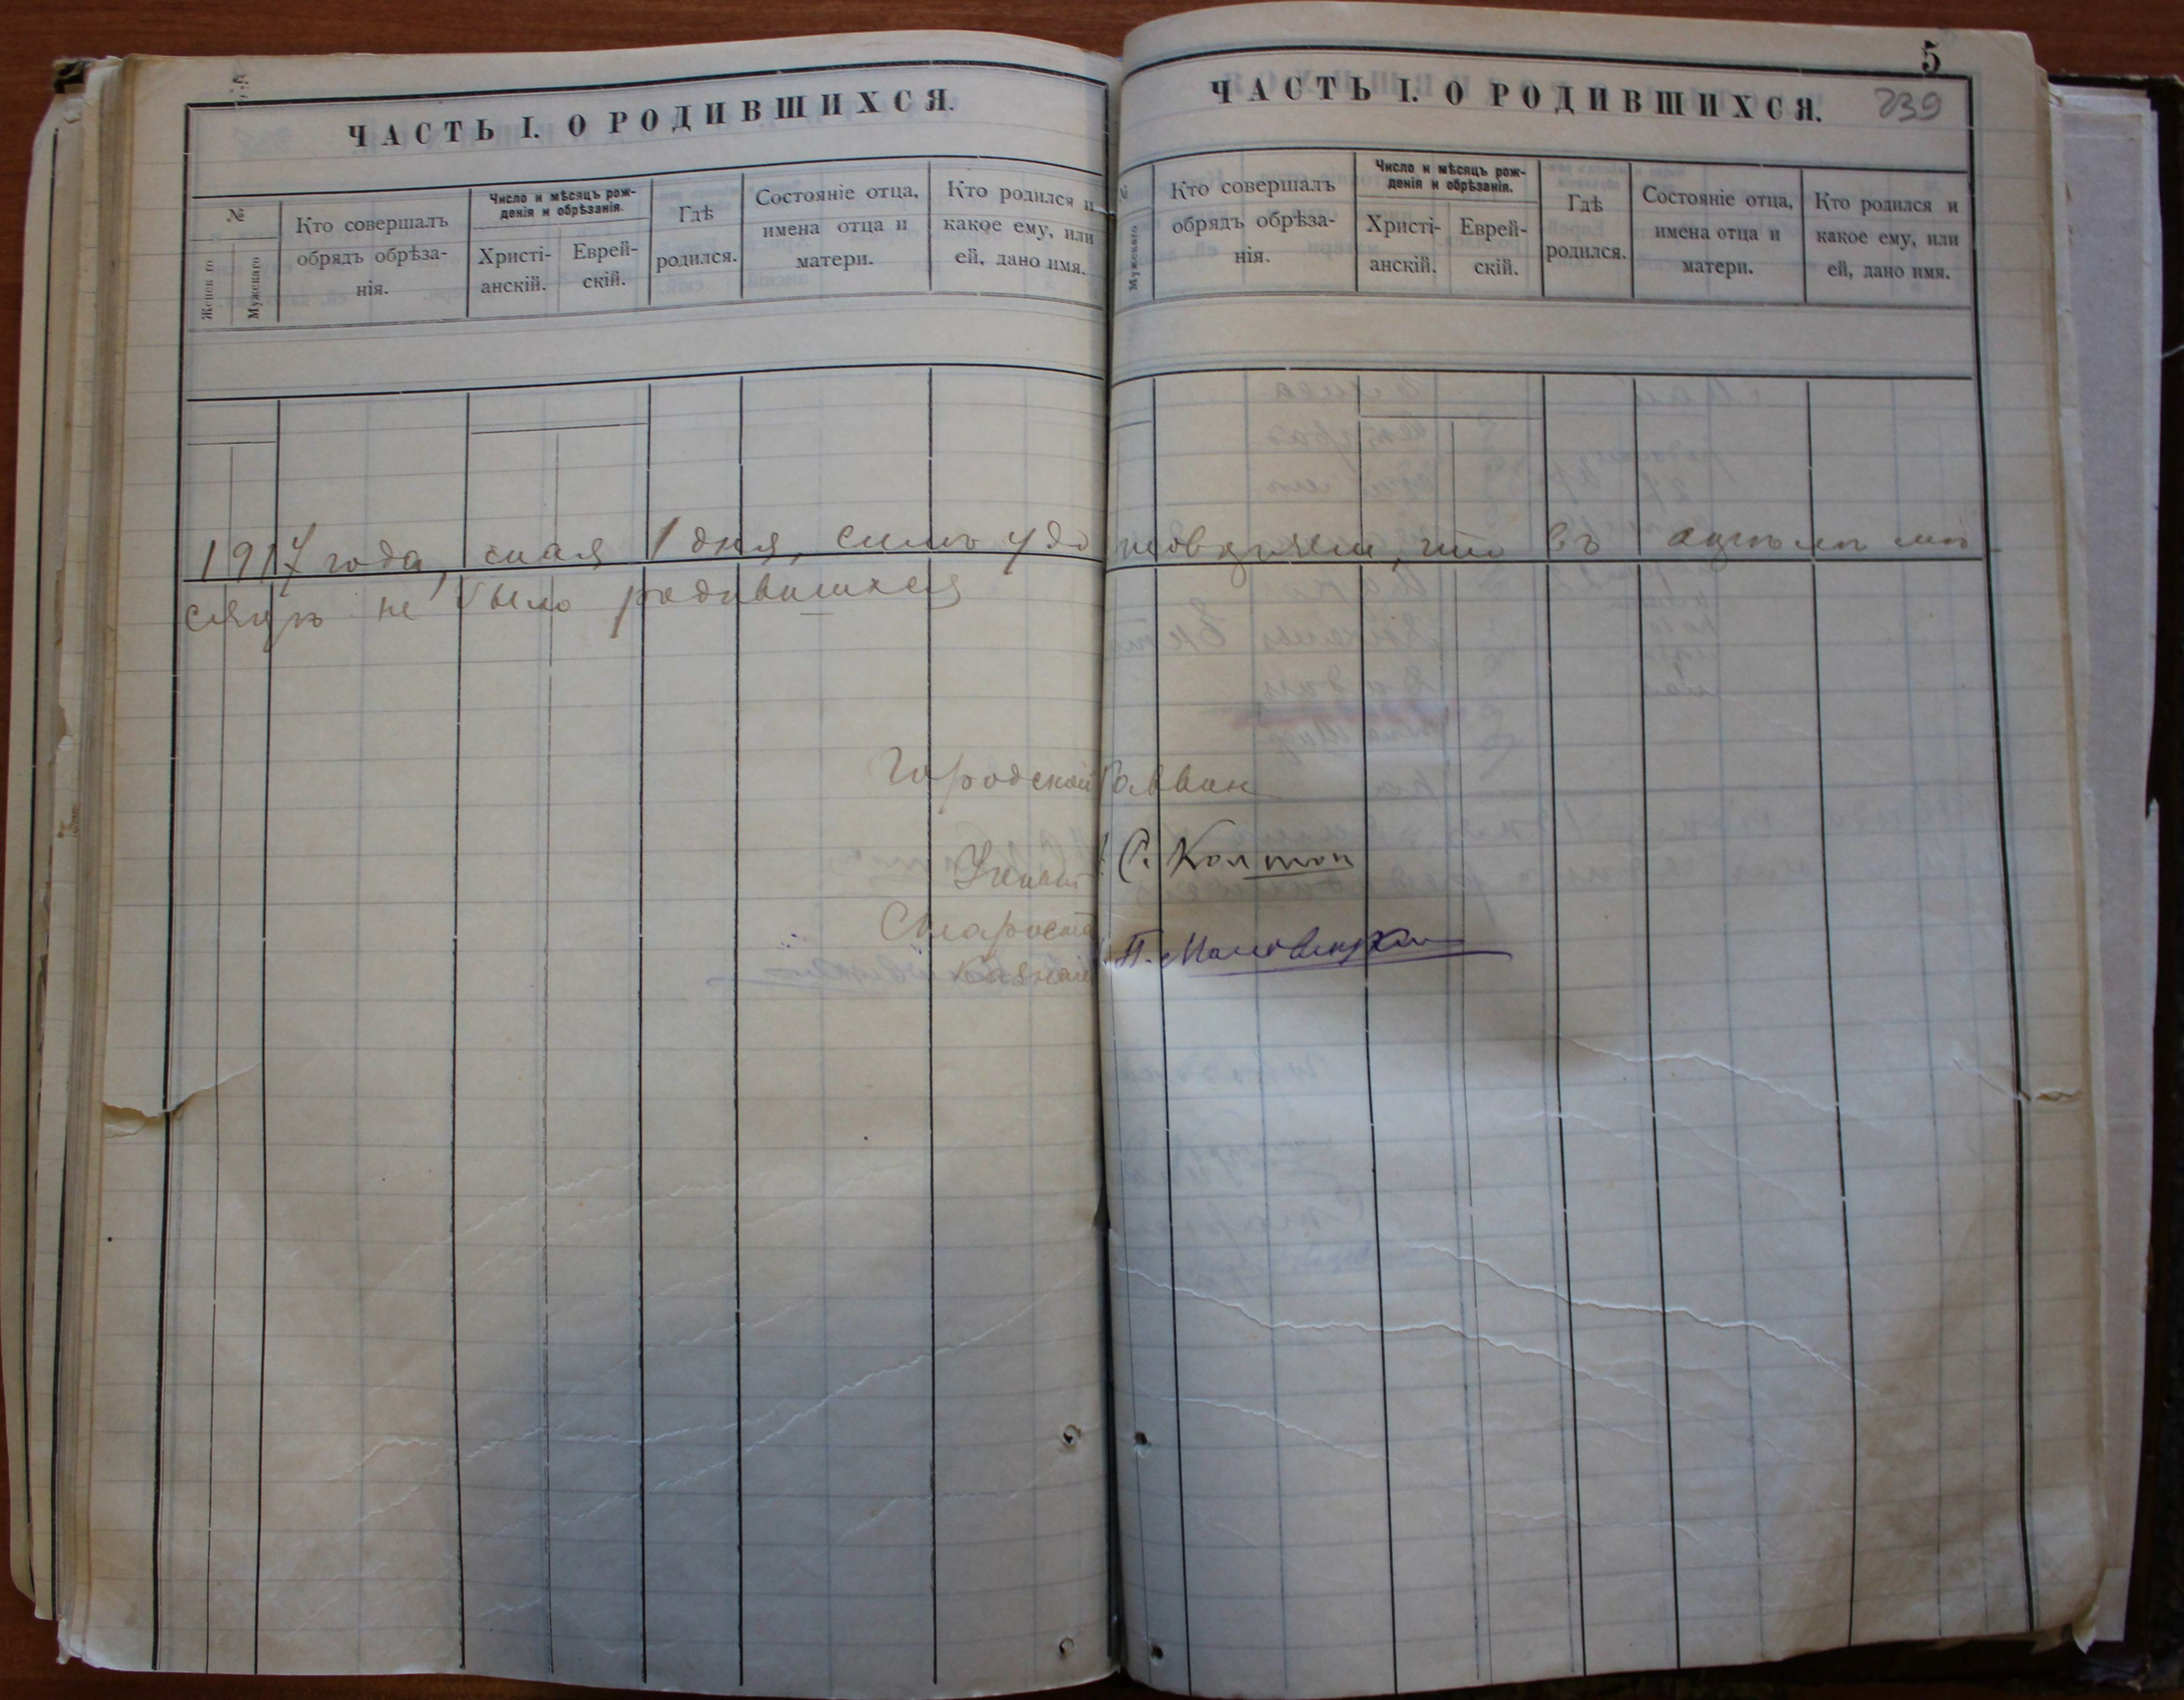 ЧАСТЬ I. О РОДИВШИХСЯ.
№
Женск го
Мужскаго
Кто совершалъ
обрядъ обрѣза-
нія.
Число и мѣсяцъ рож-
денія и обрѣзанія.
Христі-
анскій.
Еврей-
скій.
Гдѣ
родился.
Состояніе отца,
имена отца и
матери.
Кто родился и
какое ему, или
ей, дано имя.
5
ЧАСТЬ I. О РОДИВШИХСЯ.
239
№
Мужскаго
Кто совершалъ
обрядъ обрѣза-
нія.
Число и мѣсяцъ рож-
денія и обрѣзанія.
Христі-
анскій.
Еврей-
скій.
Гдѣ
родился.
Состояніе отца,
имена отца и
матери.
Кто родился и
какое ему, или
ей, дано имя.
1917 года, мая 1 дня, симъ удостовѣряемъ, что въ мѣ-
сяцѣ не было родившихся
Городской Раввинъ
Ученый С. Колтон
Староста
Казначей П.